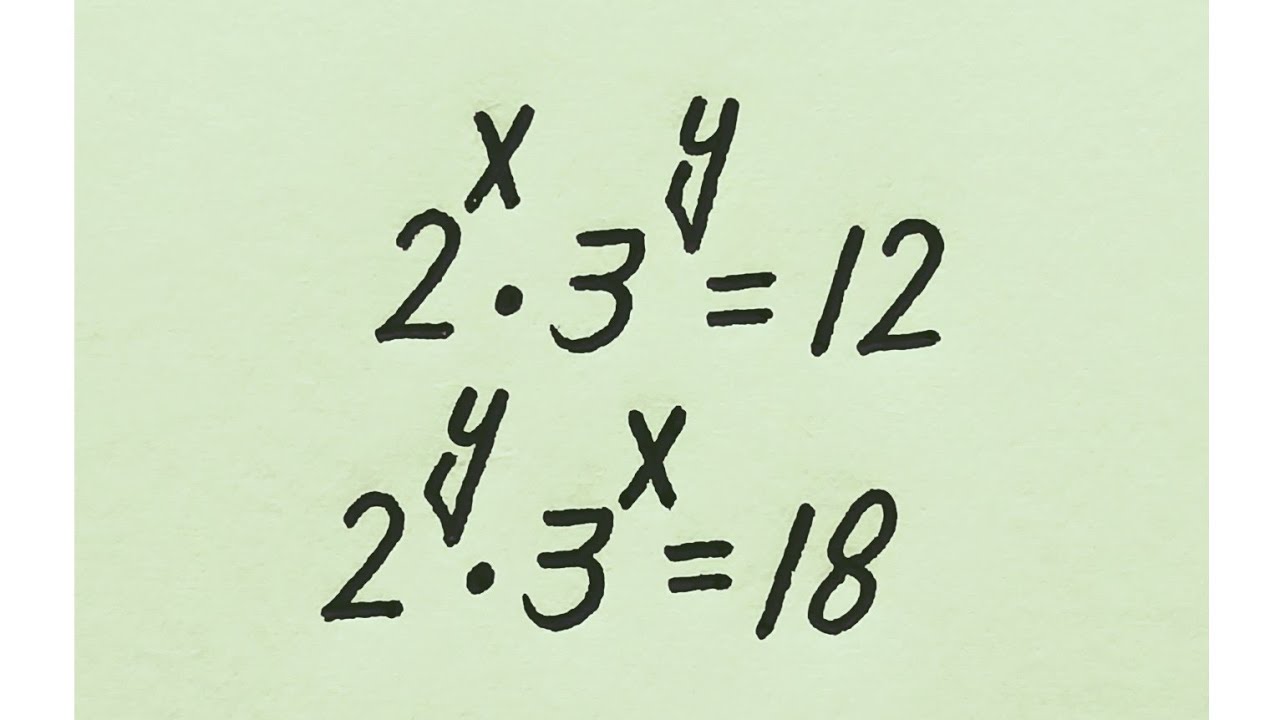 2ˣ · 3ʸ = 12
2ʸ · 3ˣ = 18